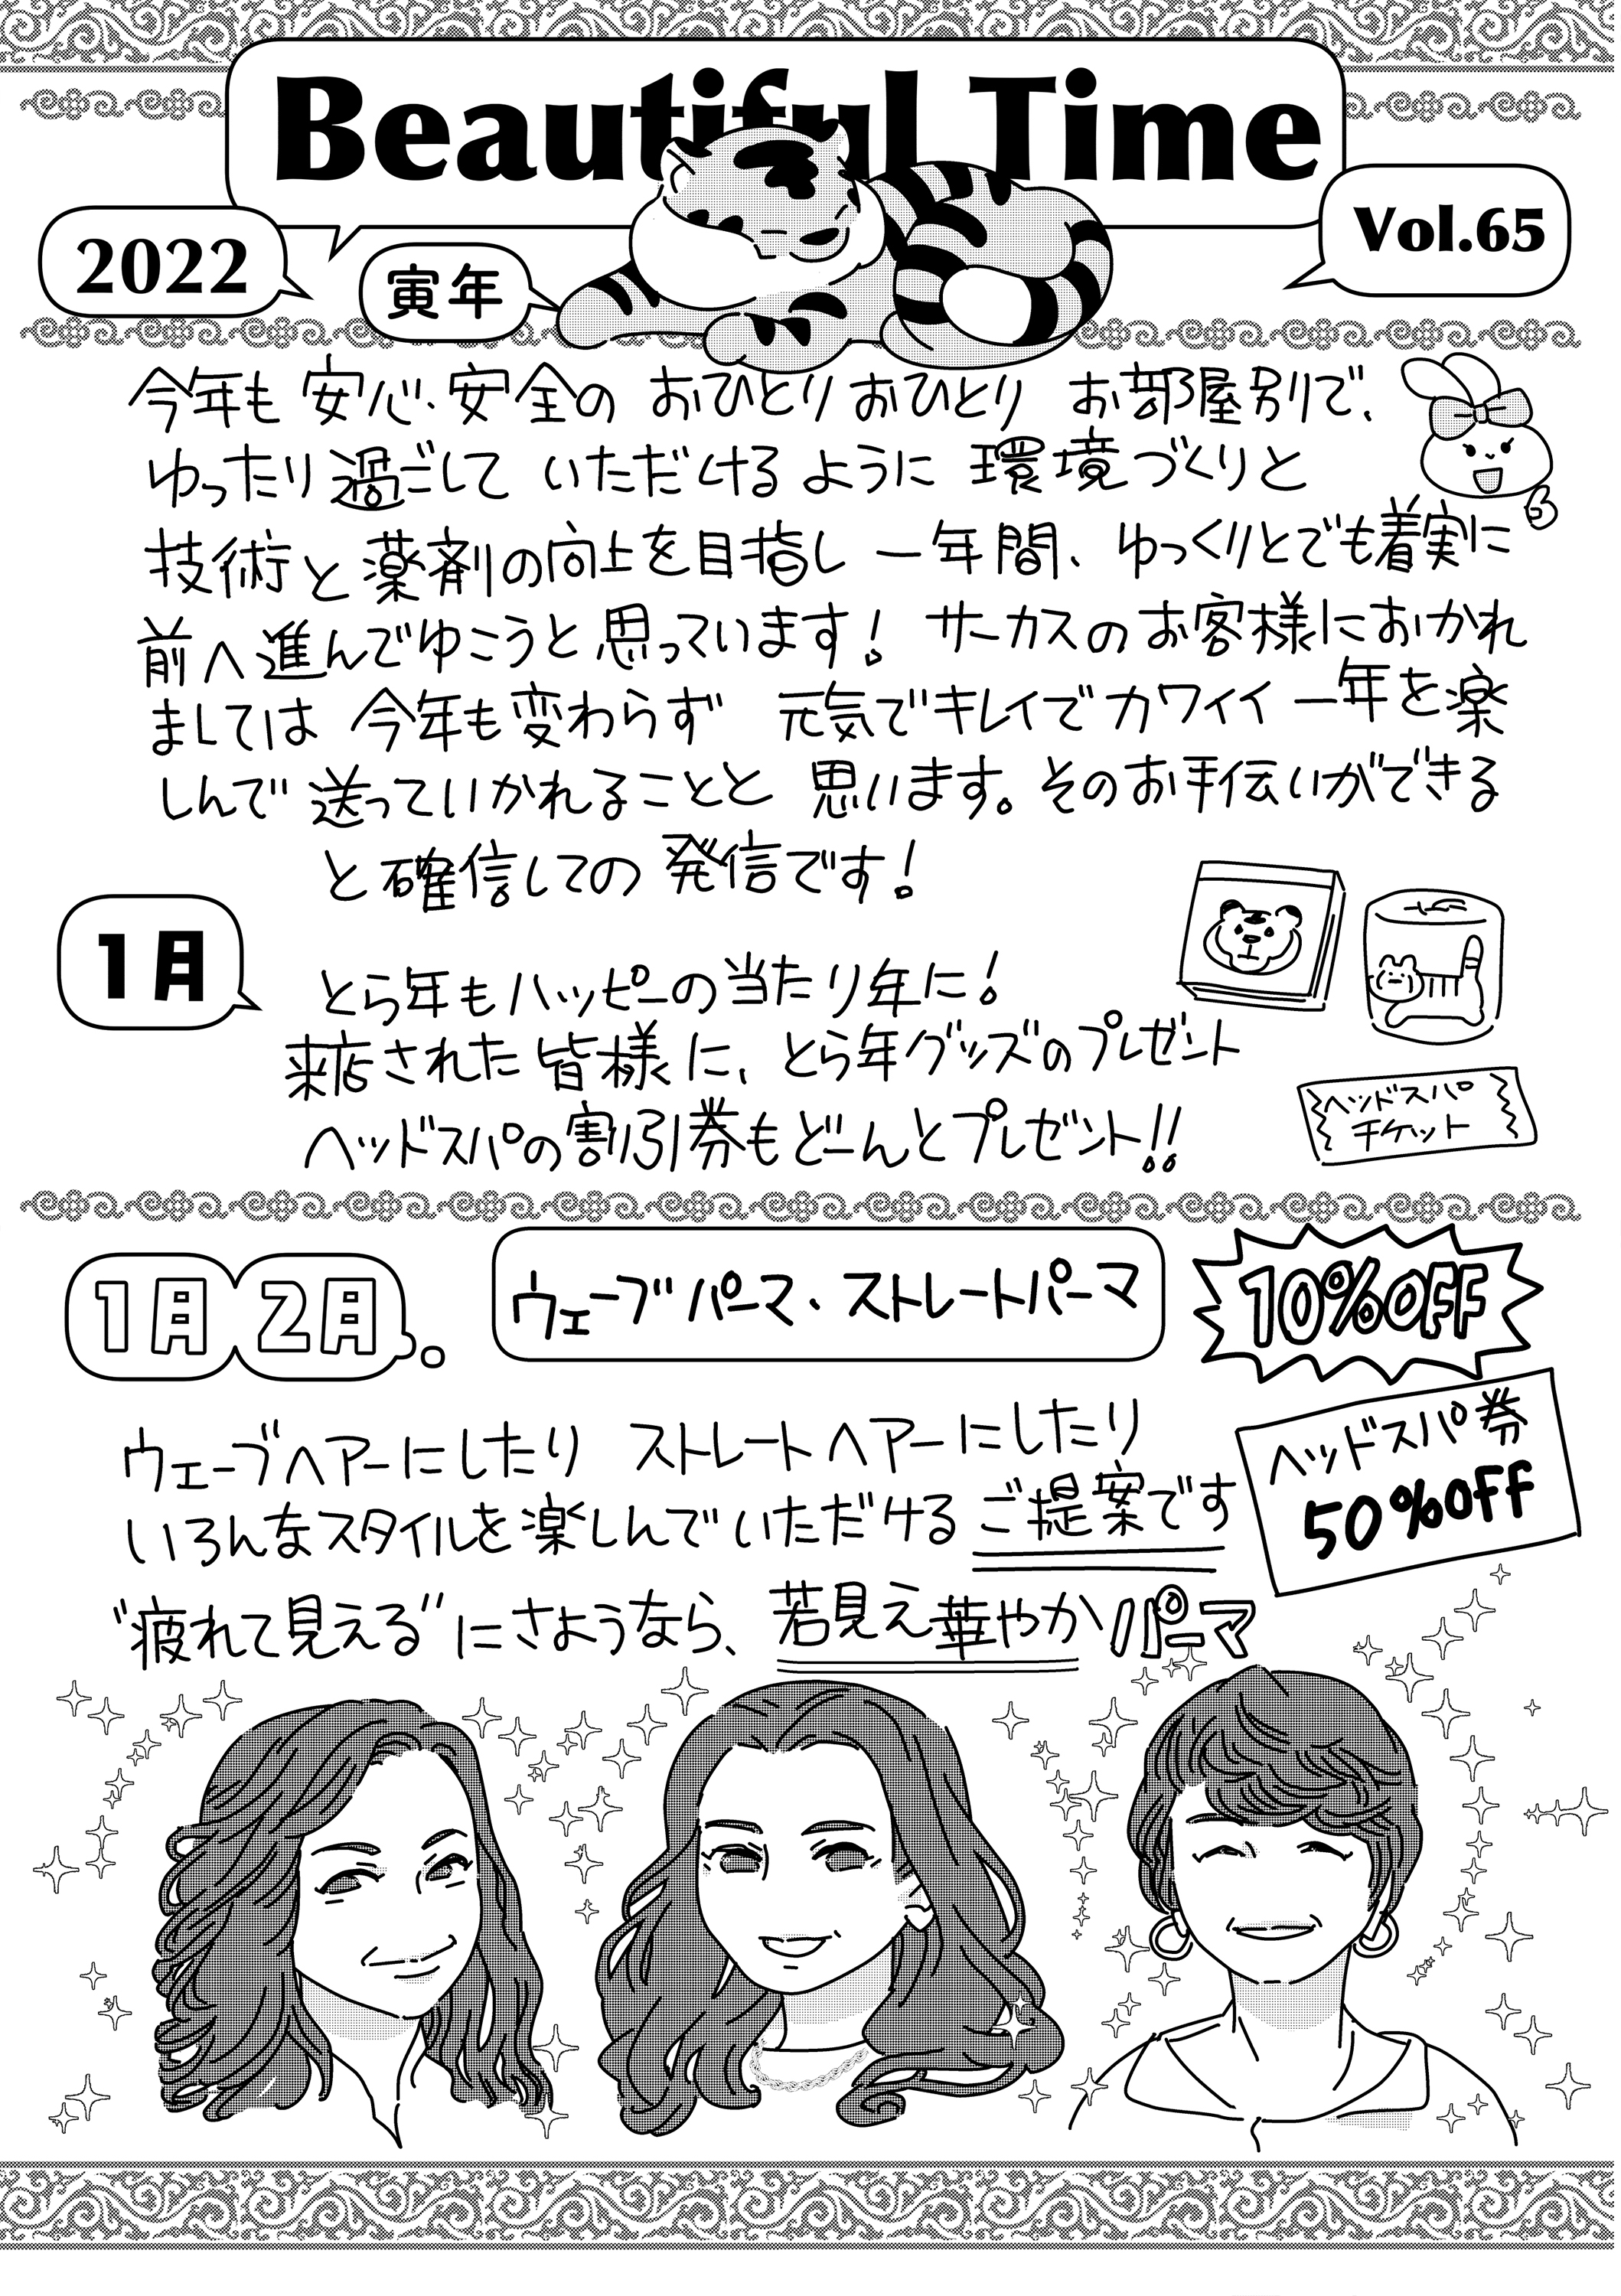 Beautiful Time
2022
寅年
Vol.65
今年も 安心・安全の おひとりおひとり お部屋別で、
ゆったり過ごして いただけるように 環境づくりと
技術と薬剤の向上を目指し 一年間、ゆっくりとでも着実に
前へ進んでゆこうと思っています! サーカスのお客様におかれ
ましては 今年も変わらず 元気でキレイでカワイイ一年を楽
しんで送っていかれることと 思います。そのお手伝いができる
と確信しての 発信です!
1月
とら年もハッピーの当たり年に!
来店された皆様に、とら年グッズのプレゼント
ヘッドスパの割引券もどーんとプレゼント!!
ヘッドスパ
チケット
1月 2月。
ウェーブパーマ、ストレートパーマ
10%OFF
ウェーブヘアーにしたり ストレートヘアーにしたり
いろんなスタイルを楽しんでいただけるご提案です
ヘッドスパ券
50%OFF
"疲れて見える"にさようなら、若見え華やかパーマ